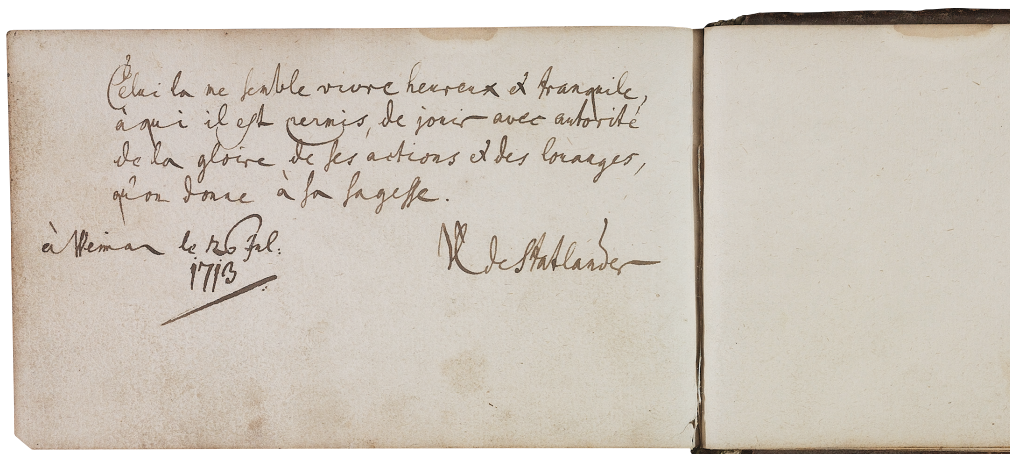 Celui la ne semble vivre heureux et tranquile,
à qui il est permis, de jouir avec autorité
de la gloire de ses actions et des loüanges,
qu'on donne à sa sagesse.
à Weimar le 26 Jul.
1713
de Statlander